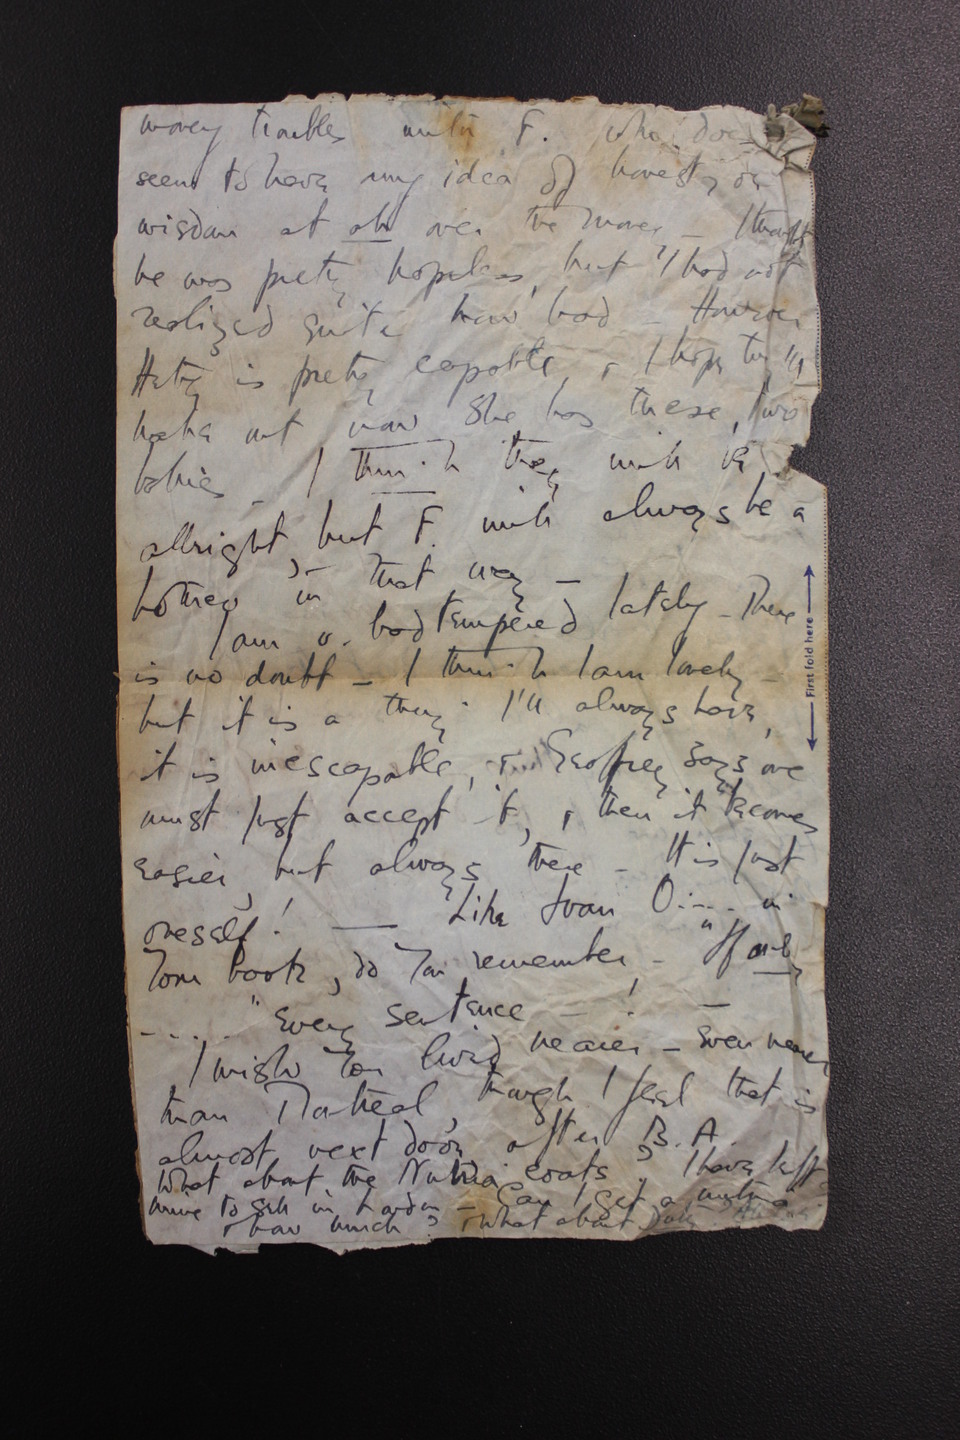 money troubles with F. who does
seem to have my idea of honesty or
wisdom at all over the money – I thought
he was pretty hopeless, but I had not
realized quite how bad – However
Hetty is pretty capable, & I hope
out now she has these two
babies – I think they will be
allright, but F. will always be a
bother in that way –
I am v. bad tempered lately – There
is no doubt – I think I am lonely –
but it is a thing I'll always have,
it is inescapable, Geoffrey says one
must just accept it, & then it becomes
easier, but always there – It is just
oneself! — Like Joan O.... in
your book, do you remember – "If only
....." Every sentence – ! –
I wish you lived nearer – even nearer
than Montreal, though I feel that is
almost next door after B.A.
What about the Nutria coats? I have left
mine to sell in London – Can I get a nutria
& how much? & what about
First fold here